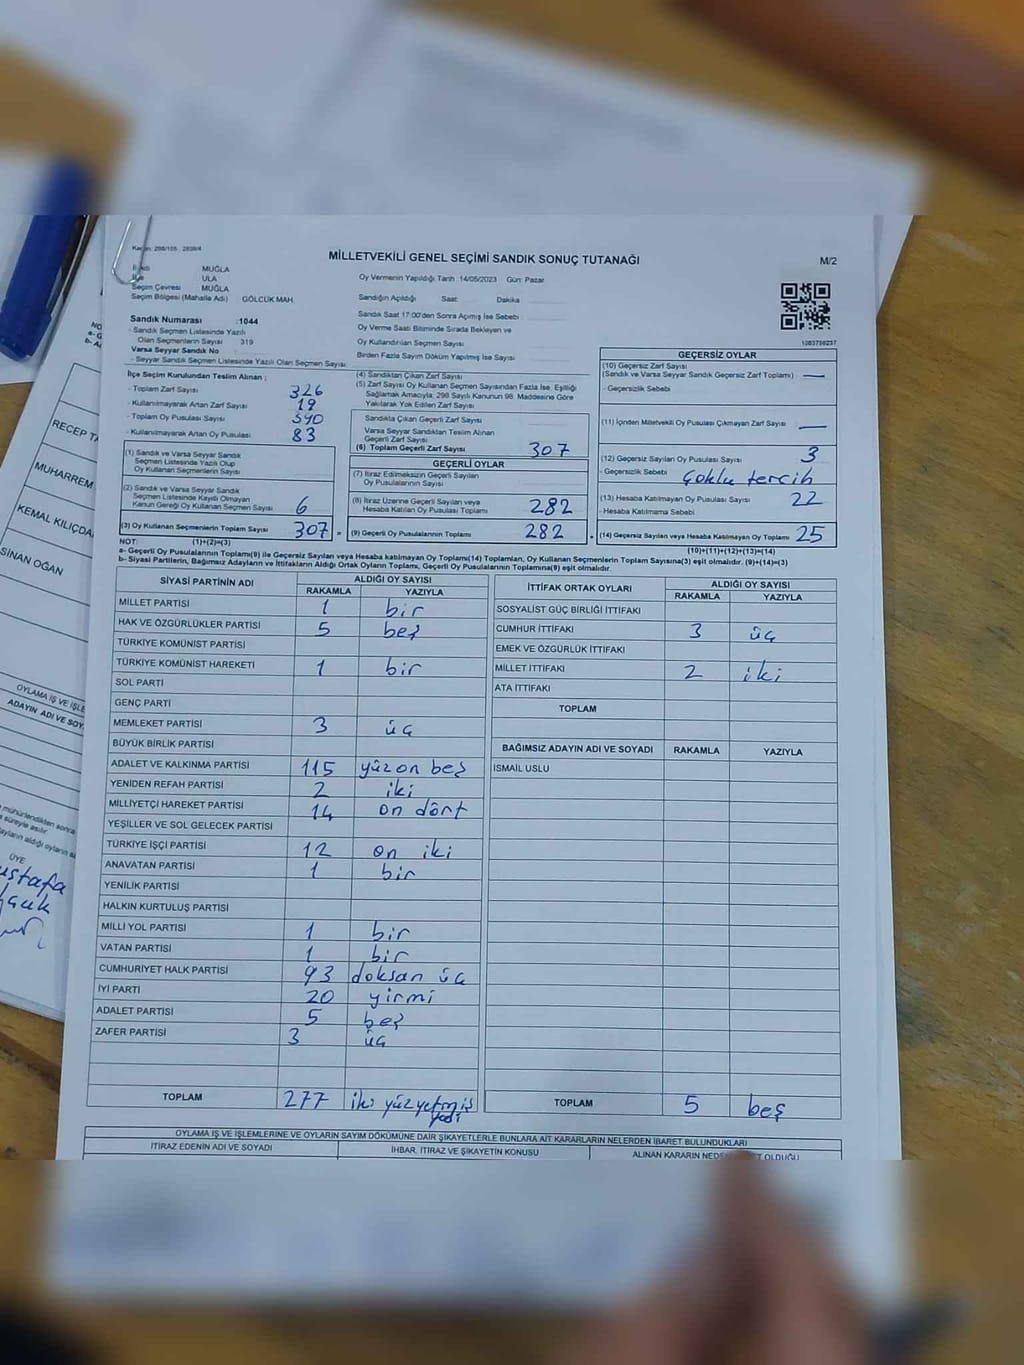 Kanun: 298/105 2839/4
MİLLETVEKİLİ GENEL SEÇİMİ SANDIK SONUÇ TUTANAĞI
M/2
MUĞLA
ULA
Seçim Çevresi MUĞLA
Seçim Bölgesi (Mahalle Adı) GÖLCÜK MAH.
Oy Vermenin Yapıldığı Tarih :14/05/2023 Gün: Pazar
Sandığın Açıldığı Saat: Dakika
Sandık Saat 17:00'den Sonra Açılmış İse Sebebi :
Oy Verme Saati Bitiminde Sırada Bekleyen ve
Oy Kullandırılan Seçmen Sayısı
Birden Fazla Sayım Döküm Yapılmış İse Sayısı
Sandık Numarası :1044
- Sandık Seçmen Listesinde Yazılı
Olan Seçmenlerin Sayısı 319
Varsa Seyyar Sandık No
- Seyyar Sandık Seçmen Listesinde Yazılı Olan Seçmen Sayısı
İlçe Seçim Kurulundan Teslim Alınan ;
- Toplam Zarf Sayısı 326
- Kullanılmayarak Artan Zarf Sayısı 19
- Toplam Oy Pusulası Sayısı 390
- Kullanılmayarak Artan Oy Pusulası 83
(1) Sandık ve Varsa Seyyar Sandık
Seçmen Listesinde Yazılı Olup
Oy Kullanan Seçmenlerin Sayısı
(2) Sandık ve Varsa Seyyar Sandık
Seçmen Listesinde Kayıtlı Olmayan
Kanun Gereği Oy Kullanan Seçmen Sayısı 6
(3) Oy Kullanan Seçmenlerin Toplam Sayısı 307 =
(4) Sandıktan Çıkan Zarf Sayısı
(5) Zarf Sayısı Oy Kullanan Seçmen Sayısından Fazla İse, Eşitliği
Sağlamak Amacıyla; 298 Sayılı Kanunun 98. Maddesine Göre
Yakılarak Yok Edilen Zarf Sayısı
Sandıkta Çıkan Geçerli Zarf Sayısı
Varsa Seyyar Sandıktan Teslim Alınan
Geçerli Zarf Sayısı
(6) Toplam Geçerli Zarf Sayısı 307
GEÇERLİ OYLAR
(7) İtiraz Edilmeksizin Geçerli Sayılan
Oy Pusulalarının Sayısı
(8) İtiraz Üzerine Geçerli Sayılan veya
Hesaba Katılan Oy Pusulası Toplamı 282
(9) Geçerli Oy Pusulalarının Toplamı 282
1083756237
GEÇERSİZ OYLAR
(10) Geçersiz Zarf Sayısı
(Sandık ve Varsa Seyyar Sandık Geçersiz Zarf Toplamı) —
- Geçersizlik Sebebi
(11) İçinden Milletvekili Oy Pusulası Çıkmayan Zarf Sayısı —
(12) Geçersiz Sayılan Oy Pusulası Sayısı 3
- Geçersizlik Sebebi Çoklu tercih
(13) Hesaba Katılmayan Oy Pusulası Sayısı 22
- Hesaba Katılmama Sebebi
(14) Geçersiz Sayılan veya Hesaba Katılmayan Oy Toplamı 25
NOT: (1)+(2)=(3) (10)+(11)+(12)+(13)=(14)
a- Geçerli Oy Pusulalarının Toplamı(9) ile Geçersiz Sayılan veya Hesaba katılmayan Oy Toplamı(14) Toplamları, Oy Kullanan Seçmenlerin Toplam Sayısına(3) eşit olmalıdır. (9)+(14)=(3)
b- Siyasi Partilerin, Bağımsız Adayların ve İttifakların Aldığı Ortak Oyların Toplamı, Geçerli Oy Pusulalarının Toplamına(9) eşit olmalıdır.
SİYASİ PARTİNİN ADI ALDIĞI OY SAYISI
RAKAMLA YAZIYLA
MİLLET PARTİSİ 1 bir
HAK VE ÖZGÜRLÜKLER PARTİSİ 5 beş
TÜRKİYE KOMÜNİST PARTİSİ
TÜRKİYE KOMÜNİST HAREKETİ 1 bir
SOL PARTİ
GENÇ PARTİ
MEMLEKET PARTİSİ 3 üç
BÜYÜK BİRLİK PARTİSİ
ADALET VE KALKINMA PARTİSİ 115 yüz on beş
YENİDEN REFAH PARTİSİ 2 iki
MİLLİYETÇİ HAREKET PARTİSİ 14 on dört
YEŞİLLER VE SOL GELECEK PARTİSİ
TÜRKİYE İŞÇİ PARTİSİ 12 on iki
ANAVATAN PARTİSİ 1 bir
YENİLİK PARTİSİ
HALKIN KURTULUŞ PARTİSİ
MİLLİ YOL PARTİSİ 1 bir
VATAN PARTİSİ 1 bir
CUMHURİYET HALK PARTİSİ 93 doksan üç
İYİ PARTİ 20 yirmi
ADALET PARTİSİ 5 beş
ZAFER PARTİSİ 3 üç
TOPLAM 277 iki yüz yetmiş yedi
İTTİFAK ORTAK OYLARI ALDIĞI OY SAYISI
RAKAMLA YAZIYLA
SOSYALİST GÜÇ BİRLİĞİ İTTİFAKI
CUMHUR İTTİFAKI 3 üç
EMEK VE ÖZGÜRLÜK İTTİFAKI
MİLLET İTTİFAKI 2 iki
ATA İTTİFAKI
TOPLAM
BAĞIMSIZ ADAYIN ADI VE SOYADI RAKAMLA YAZIYLA
İSMAİL USLU
TOPLAM 5 beş
OYLAMA İŞ VE İŞLEMLERİNE VE OYLARIN SAYIM DÖKÜMÜNE DAİR ŞİKAYETLERLE BUNLARA AİT KARARLARIN NELERDEN İBARET BULUNDUKLARI
İTİRAZ EDENİN ADI VE SOYADI İHBAR, İTİRAZ VE ŞİKAYETİN KONUSU ALINAN KARARIN
OLDUĞU
RECEP
MUHARREM
KEMAL
SİNAN OĞAN
OYLAMA İŞ VE
ADAYIN ADI VE
mühürlendikten sonra
süreyle asılır.
ÜYE